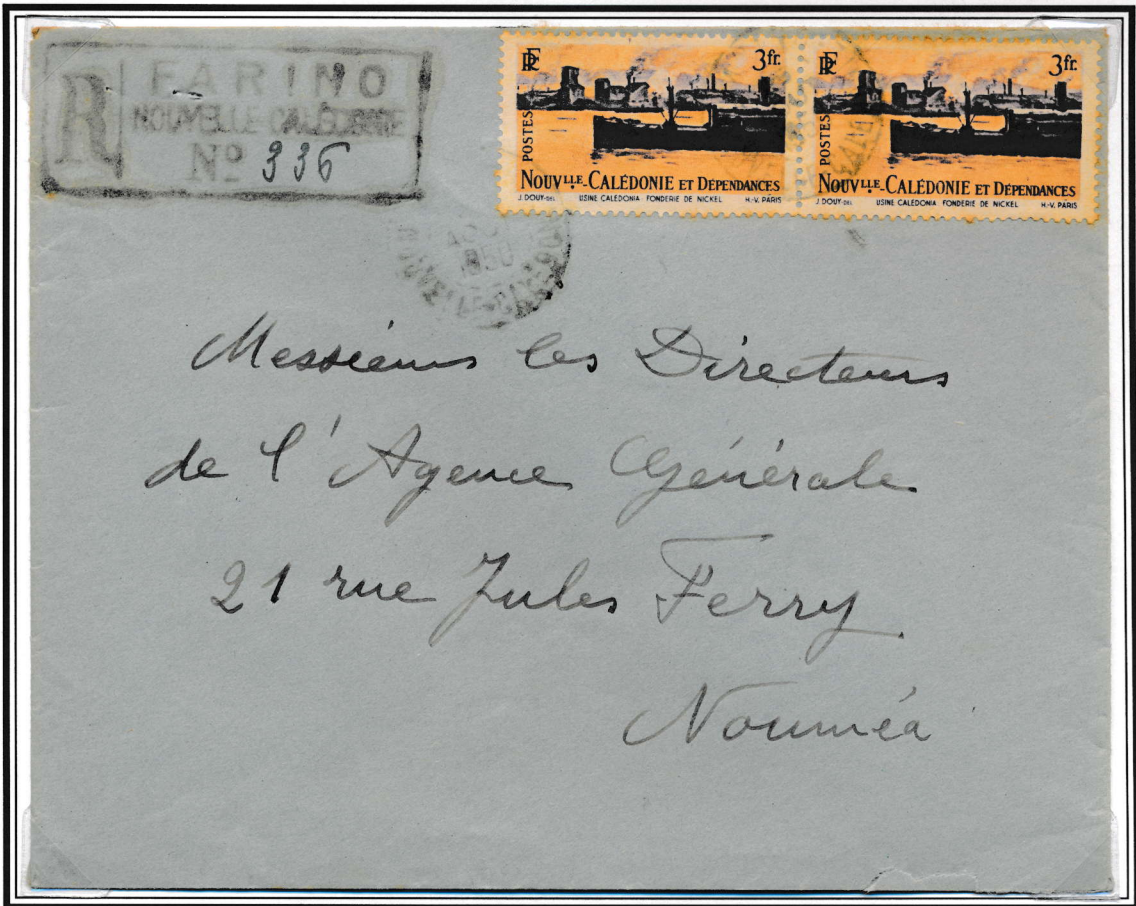 R FARINO
NOUVELLE CALÉDONIE
Nº 336
RF 3fr.
POSTES
NOUVLLE-CALÉDONIE ET DÉPENDANCES
J. DOUY-DEL USINE CALÉDONIA FONDERIE DE NICKEL H.-V. PARIS
RF 3fr.
POSTES
NOUVLLE-CALÉDONIE ET DÉPENDANCES
J. DOUY-DEL USINE CALÉDONIA FONDERIE DE NICKEL H.-V. PARIS
1950
Messieurs les Directeurs
de l'Agence Générale
21 rue Jules Ferry
Nouméa